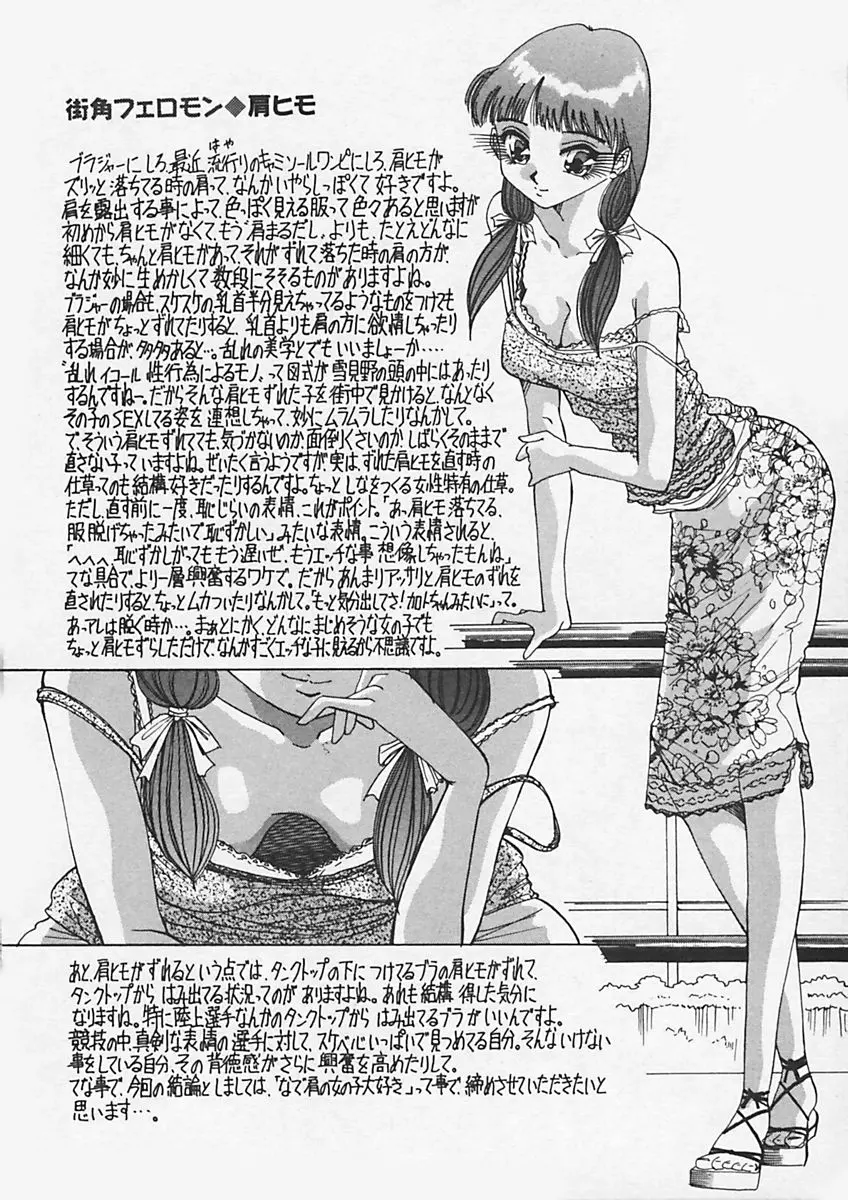 街角フェロモン◆肩ヒモ
ブラジャーにしろ、最近 流行りのキャミソールワンピにしろ、肩ヒモが
はや
ズリッと落ちてる時の肩って、なんかいやらしっぽくて 好きですよ。
肩を露出する事によって、色っぽく見える服って 色々あると思いますが
初めから肩ヒモがなくて、もう"肩まるだし"よりも、たとえどんなに
細くても、ちゃんと肩ヒモがあって、それがずれて落ちた時の肩の方が、
なんか妙に生めかしくて数段にそそるものがありますよね。
ブラジャーの場合も、スケスケの、乳首半分見えちゃってるようなものをつけても
肩ヒモがちょっとずれてたりすると、乳首よりも肩の方に欲情しちゃったり
する場合が多々あると…。乱れの美学とでもいいましょーか‥‥
"乱れ イコール 性行為によるモノ"って図式が 雪見野の頭の中にはあったり
するんですねー。だからそんな肩ヒモずれた子を街中で見かけると、なんとなく
その子のSEXしてる姿を 連想しちゃって、妙にムラムラしたりなんかして。
で、そういう肩ヒモずれてても、気づかないのか、面倒くさいのか、しばらくそのままで
直さない子っていますよね。ぜいたく言うようですが 実は、ずれた肩ヒモを直す時の
仕草ってのも結構好きだったりするんですよ。ちょっと しなをつくる女性特有の仕草。
ただし、直す前に一度、恥じらいの表情、これがポイント。「あっ、肩ヒモ落ちてる、
服脱げちゃったみたいで恥ずかしい」みたいな表情。こういう表情されると、
「へへへ、恥ずかしがっても もう遅いぜ、もうエッチな事 想像しちゃったもんね」
てな具合で、より一層興奮するワケで。だからあんまりアッサリと肩ヒモのずれを
直されたりすると、ちょっとムカついたりなんかして。"もっと気分出してさ!加トちゃんみたいに"って。
あーアレは脱ぐ時か…。まぁとにかくどんなにまじめそうな女の子でも
ちょっと肩ヒモずらしただけで、なんかすごくエッチな子に見えるから不思議ですよ。
あと、肩ヒモがずれるという点では、タンクトップの下につけてるブラの肩ヒモがずれて、
タンクトップから はみ出てる状況ってのが ありますよね。あれも結構 得した気分に
なりますね。特に陸上選手なんかのタンクトップから はみ出てるブラがいいんですよ。
競技の中、真剣な表情の選手に対して、スケベ心いっぱいで見つめてる自分。そんないけない
事をしている自分、その背徳感がさらに 興奮を高めたりして。
てな事で、今回の結論としましては、「なで肩の女の子大好き」って事で、締めさせていただきたいと
思います…。